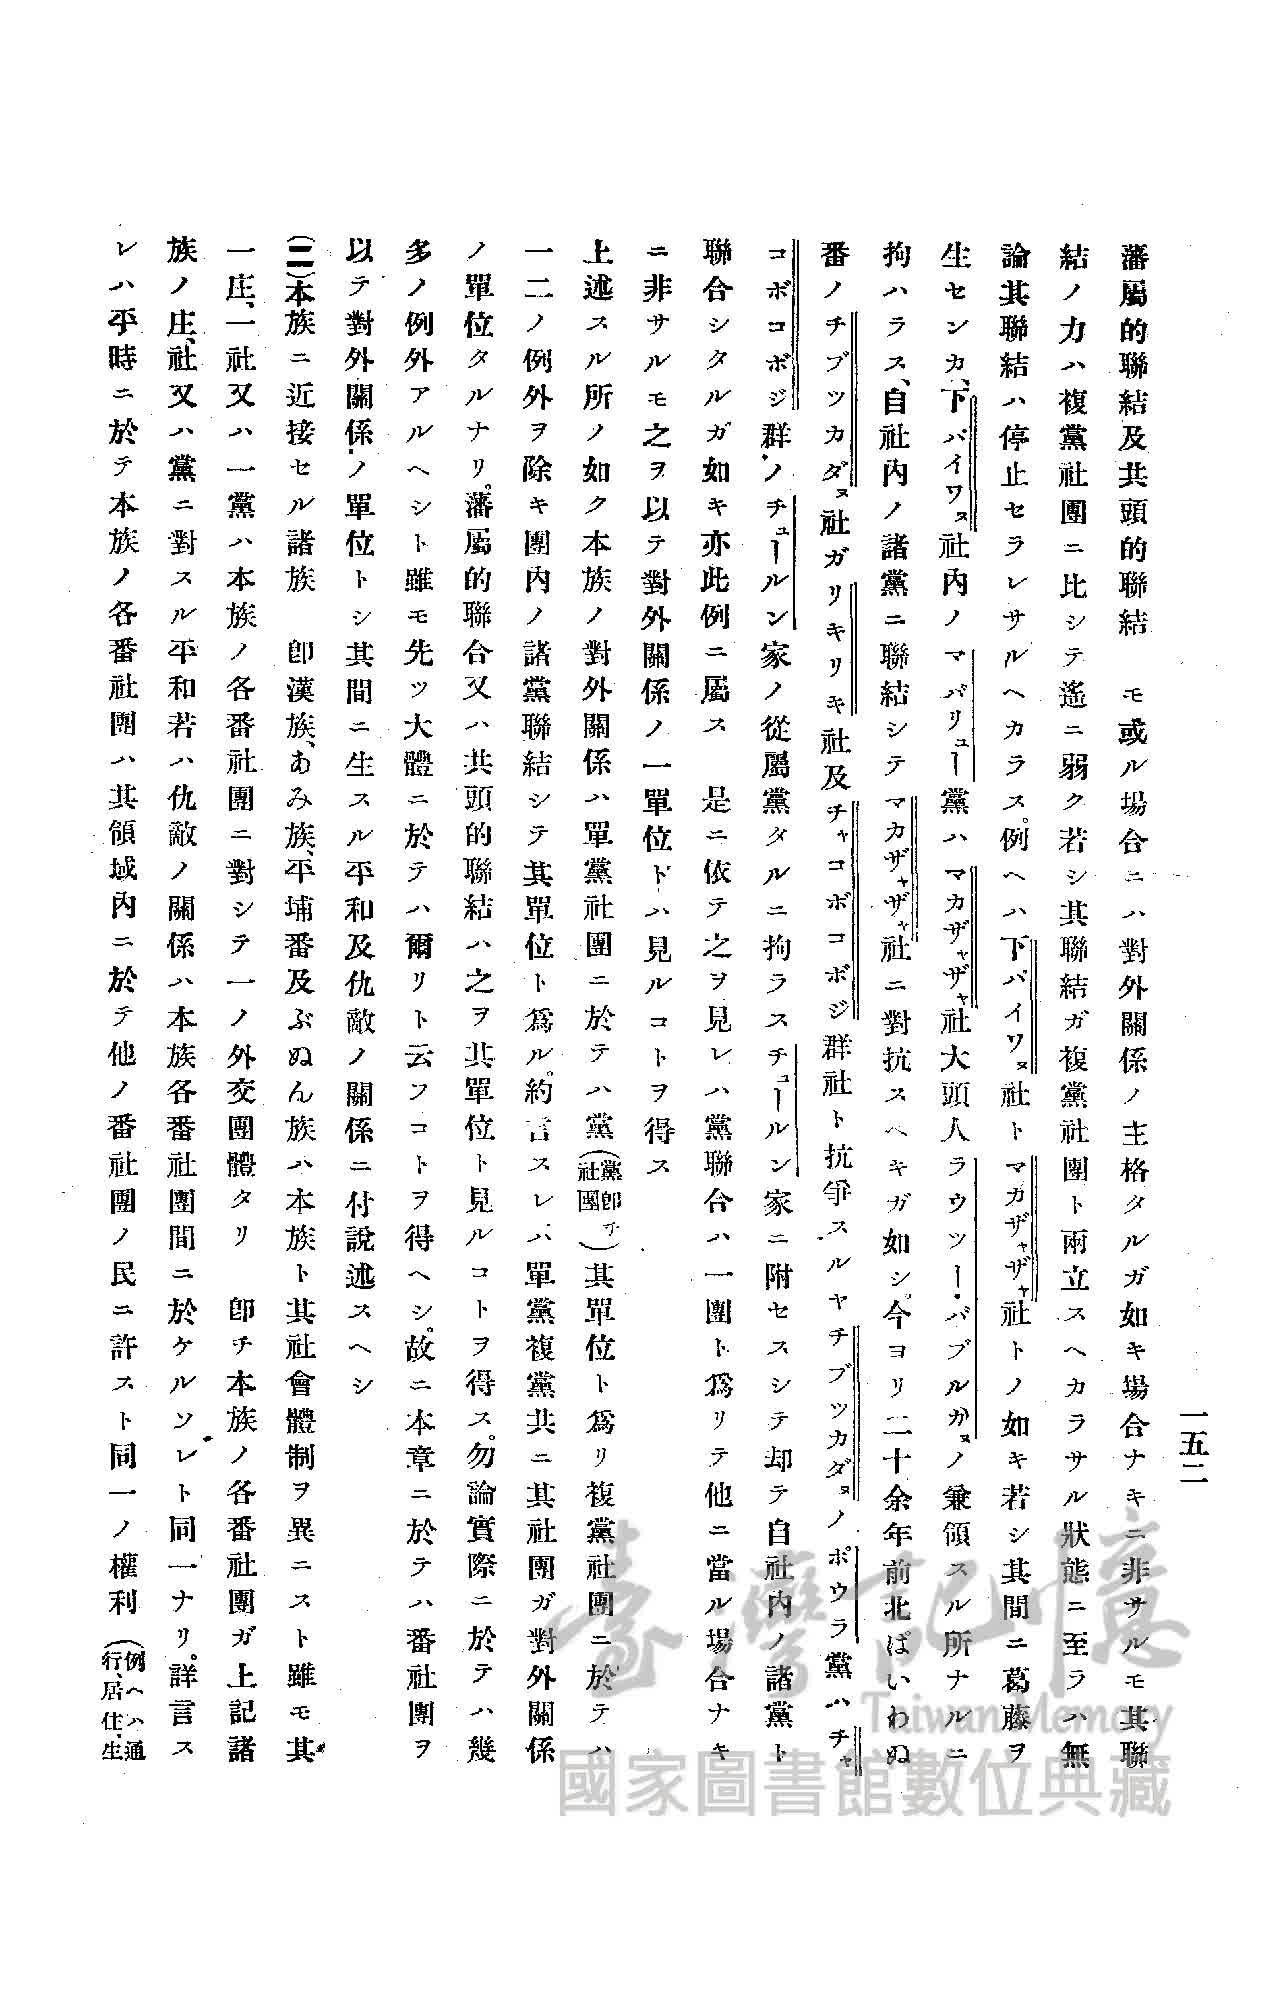 一五二
藩屬的聯結及共頭的聯結　モ或ル場合ニハ對外關係ノ主格タルガ如キ場合ナキニ非サルモ其聯
結ノ力ハ複黨社團ニ比シテ遙ニ弱ク若シ其聯結ガ複黨社團ト兩立スヘカラサル狀態ニ至ラハ無
論其聯結ハ停止セラレサルヘカラス。例ヘハ下バイワヌ社トマカザャザャ社トノ如キ若シ其間ニ葛藤ヲ
生センカ、下バイワヌ社内ノマバリュー黨ハマカザャザャ社大頭人ラウツー・バブルガヌノ兼領スル所ナルニ
拘ハラス、自社内ノ諸黨ニ聯結シテマカザャザャ社ニ對抗スヘキガ如シ。今ヨリ二十余年前北ぱいわぬ
番ノチブツカダヌ社ガリキリキ社及チャコボコボジ群社ト抗爭スルヤチブツカダヌノボウラ黨ハチャ
コボコボジ群ノチュールン家ノ從屬黨タルニ拘ラスチュールン家ニ附セスシテ却テ自社内ノ諸黨ト
聯合シタルガ如キ亦此例ニ屬ス　是ニ依テ之ヲ見レハ黨聯合ハ一團ト爲リテ他ニ當ル場合ナキ
ニ非サルモ之ヲ以テ對外關係ノ一單位トハ見ルコトヲ得ス
上述スル所ノ如ク本族ノ對外關係ハ單黨社團ニ於テハ黨(黨卽チ社團)其單位ト爲リ複黨社團ニ於テハ
一二ノ例外ヲ除キ團内ノ諸黨聯結シテ其單位ト爲ル。約言スレハ單黨複黨共ニ其社團ガ對外關係
ノ單位タルナリ。藩屬的聯合又ハ共頭的聯結ハ之ヲ其單位ト見ルコトヲ得ス。勿論實際ニ於テハ幾
多ノ例外アルヘシト雖モ先ツ大體ニ於テハ爾リト云フコトヲ得ヘシ。故ニ本章ニ於テハ番社團ヲ
以テ對外關係ノ單位トシ其間ニ生スル平和及仇敵ノ關係ニ付說述スヘシ
(二)本族ニ近接セル諸族　卽漢族、あみ族、平埔番及ぶぬん族ハ本族ト其社會體制ヲ異ニスト雖モ其
一庄、一社又ハ一黨ハ本族ノ各番社團ニ對シテ一ノ外交團體タリ　卽チ本族ノ各番社團ガ上記諸
族ノ庄、社又ハ黨ニ對スル平和若ハ仇敵ノ關係ハ本族各番社團間ニ於ケルソレト同一ナリ。詳言ス
レハ平時ニ於テ本族ノ各番社團ハ其領域内ニ於テ他ノ番社團ノ民ニ許スト同一ノ權利(例ヘハ通行、居住、生
臺灣記憶
Taiwan Memory
國家圖書館數位典藏